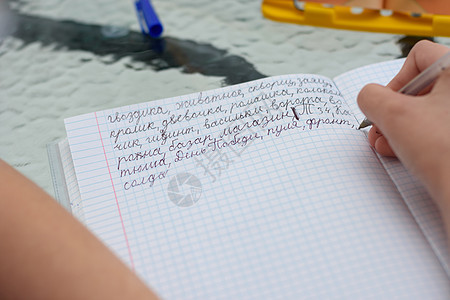 гвоздика, животная, скворец, заяц,
кролик, девочка, ромашка, колоколь
чик, гиацинт, васильки, ворота, во
рона, базар, магазин,
тюльпа, День Победы, пуля, фронт,
солда